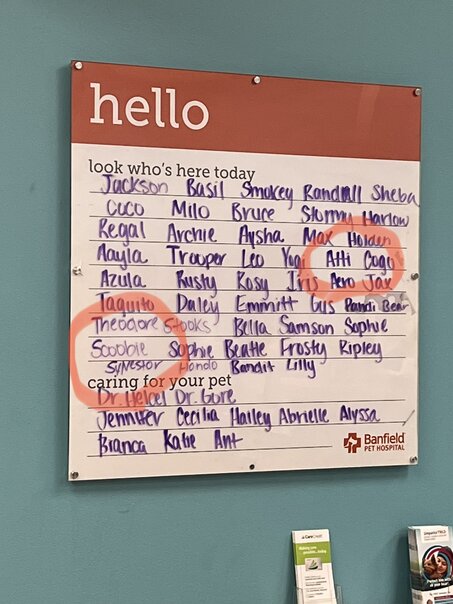 hello
look who's here today
Jackson Basil Smokey Randall Sheba
Coco Milo Bruce Stormy Harlow
Regal Archie Aysha Max Holden
Aayla Trooper Leo Yogi Atti Cogu
Azula Rusty Rosy Iris Aero Jax
Taquito Daley Emmitt Gus Pandi Bear
Theodore Stooks Bella Samson Sophie
Scoobie Sophie Beatie Frosty Ripley
Synestor Hondo Bandit Lilly
caring for your pet
Dr. Heicel Dr. Gore
Jennifer Cecilia Hailey Abrielle Alyssa
Bianca Katie Ant
Banfield
PET HOSPITAL
CareCredit